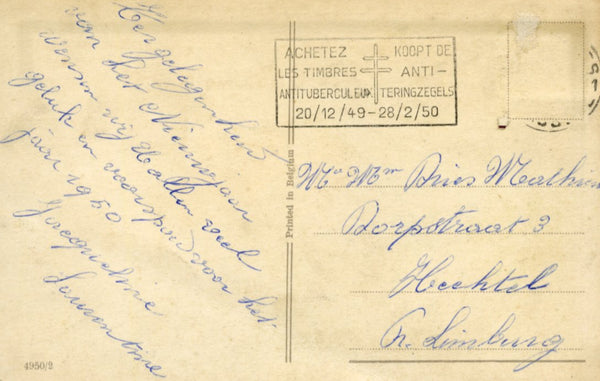 Ter gelegenheid
van het Nieuwjaar
wensen wij U allen veel
geluk en voorspoed voor het
jaar 1950
Jacqueline
ACHETEZ
LES TIMBRES
ANTITUBERCULEUX
KOOPT DE
ANTI-
TERINGZEGELS
20/12/49-28/2/50
Printed in Belgium
Mr Mm Dries Mathieu
Dorpstraat 3
Hechtel
Pr. Limburg
4950/2